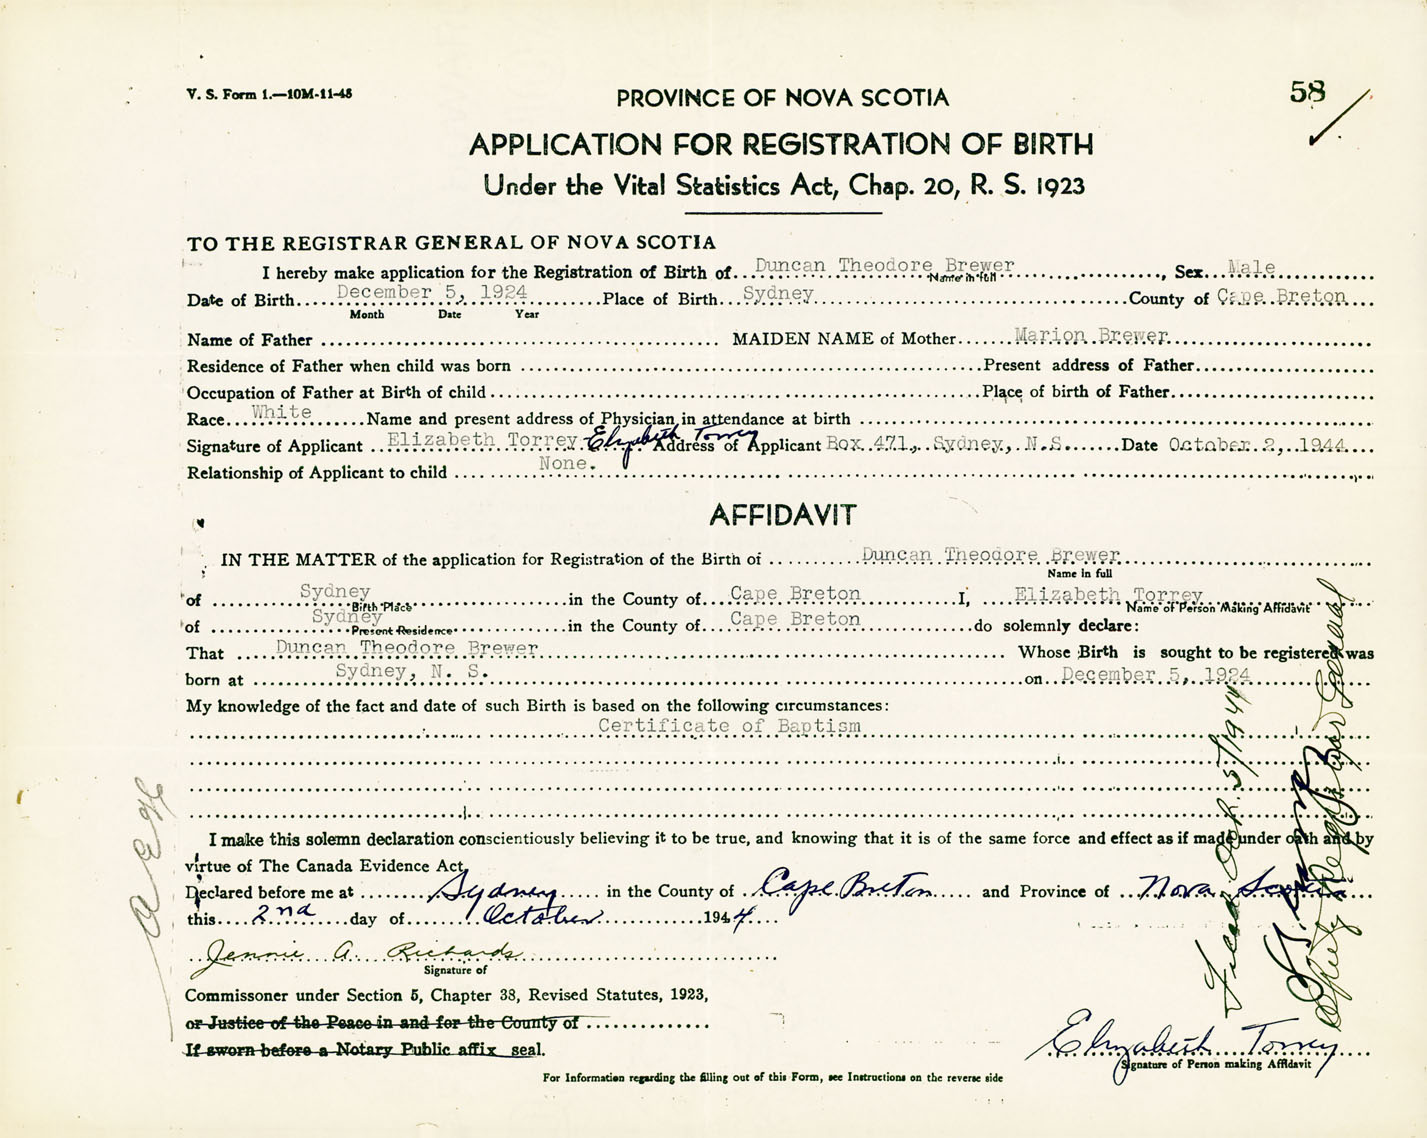 V. S. Form 1.—10M-11-43
PROVINCE OF NOVA SCOTIA
58
APPLICATION FOR REGISTRATION OF BIRTH
Under the Vital Statistics Act, Chap. 20, R. S. 1923
TO THE REGISTRAR GENERAL OF NOVA SCOTIA
I hereby make application for the Registration of Birth of Duncan Theodore Brewer, Sex Male
Name in full
Date of Birth December 5, 1924 Place of Birth Sydney County of Cape Breton
Month Date Year
Name of Father MAIDEN NAME of Mother Marion Brewer
Residence of Father when child was born Present address of Father
Occupation of Father at Birth of child Place of birth of Father
Race White Name and present address of Physician in attendance at birth
Signature of Applicant Elizabeth Torrey Elizabeth Torrey Address of Applicant Box 471, Sydney, N.S. Date October 2, 1944
Relationship of Applicant to child None.
AFFIDAVIT
IN THE MATTER of the application for Registration of the Birth of Duncan Theodore Brewer
Name in full
of Sydney in the County of Cape Breton I, Elizabeth Torrey
Birth Place Name of Person Making Affidavit
of Sydney in the County of Cape Breton do solemnly declare:
Present Residence
That Duncan Theodore Brewer Whose Birth is sought to be registered was
born at Sydney, N. S. on December 5, 1924
My knowledge of the fact and date of such Birth is based on the following circumstances:
Certificate of Baptism
I make this solemn declaration conscientiously believing it to be true, and knowing that it is of the same force and effect as if made under oath and by
virtue of The Canada Evidence Act.
Declared before me at Sydney in the County of Cape Breton and Province of Nova Scotia
this 2nd day of October 1944
Jennie A. Richards
Signature of
Commissoner under Section 5, Chapter 38, Revised Statutes, 1923,
or Justice of the Peace in and for the County of
If sworn before a Notary Public affix seal.
Elizabeth Torrey
Signature of Person making Affidavit
For Information regarding the filling out of this Form, see Instructions on the reverse side
Filed Oct. 5/1944
Deputy Registrar General